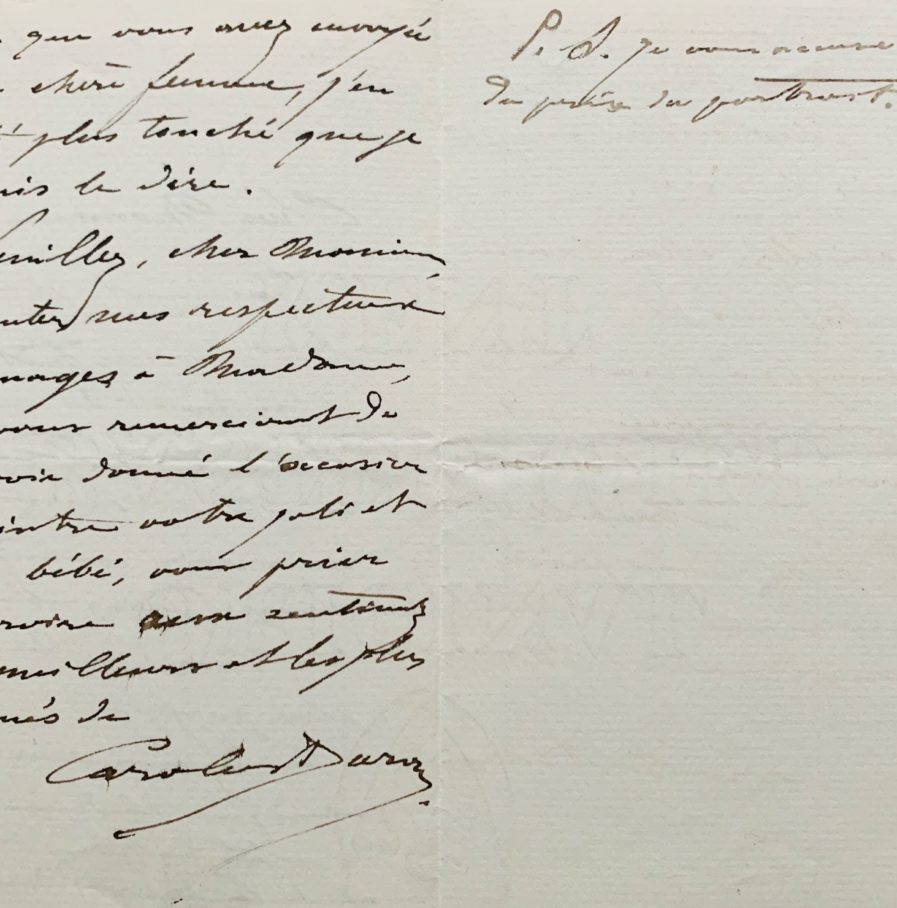 que vous avez envoyé
chère femme, j'en
plus touché que je
uis le dire.
euillez, cher Monsieur,
enter mes respectueux
mages à Madame,
vous remerciant de
voir donné l'occasion
eintre votre joli et
bébé, vous prier
croire aux sentiments
meilleurs et les plus
ués de
Carolus Duran
P. S. je vous accuse
du prix du portrait.